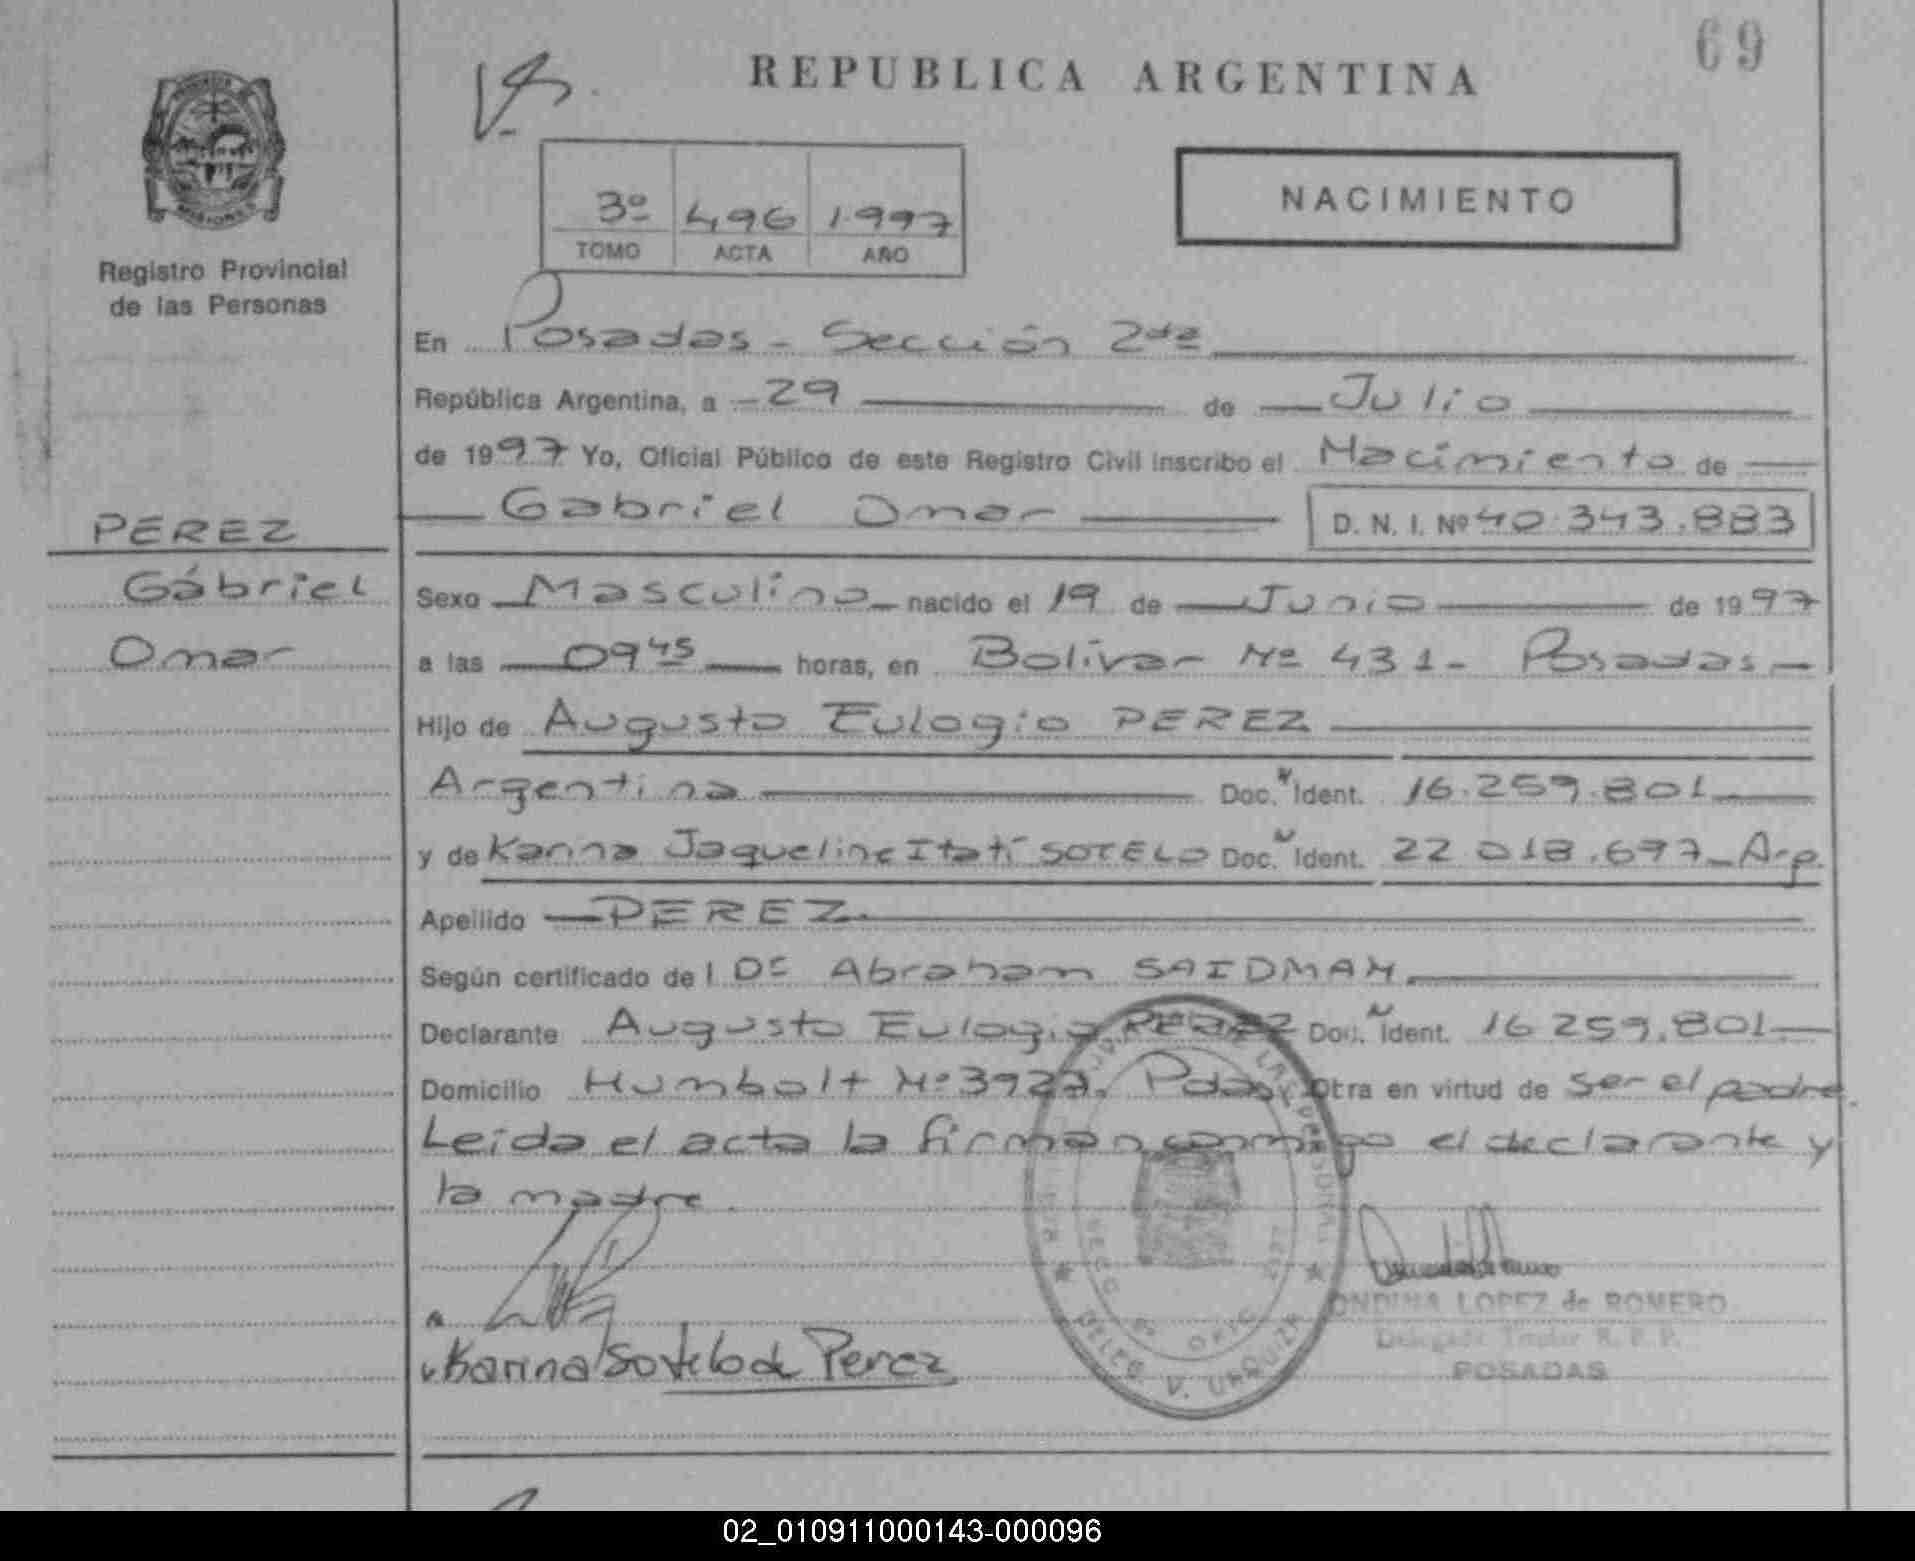 69
REPUBLICA ARGENTINA
NACIMIENTO
3º 496 1.997
TOMO ACTA AÑO
MISIONES
Registro Provincial
de las Personas
En Posadas - Sección 2da
República Argentina, a - 29 de Julio
de 1997 Yo, Oficial Público de este Registro Civil inscribo el Nacimiento de
Gabriel Omar D. N. I. Nº 40.343.883
PEREZ
Gábriel
Omar
Sexo Masculino nacido el 19 de Junio de 1997
a las 09 45 horas, en Bolívar Nº 431 - Posadas -
Hijo de Augusto Eulogio PEREZ
Argentina Doc. Ident. 16.259.801
y de Karina Jaqueline Itatí SOTELO Doc. Ident. 22.018.697 - Arg.
Apellido PEREZ.
Según certificado de l Dr Abraham SAIDMAN.
Declarante Augusto Eulogio PEREZ Doc. Ident. 16.259.801
Domicilio Humbolt Nº 3927. Pdas. Otra en virtud de ser el padre.
Leida el acta la firman conmigo el declarante y
la madre.
Karina Sotelo de Perez
ONDINA LOPEZ de ROMERO
Delegada Titular R. P. P.
POSADAS
DELEG. V. URQUIZA
02_010911000143-000096